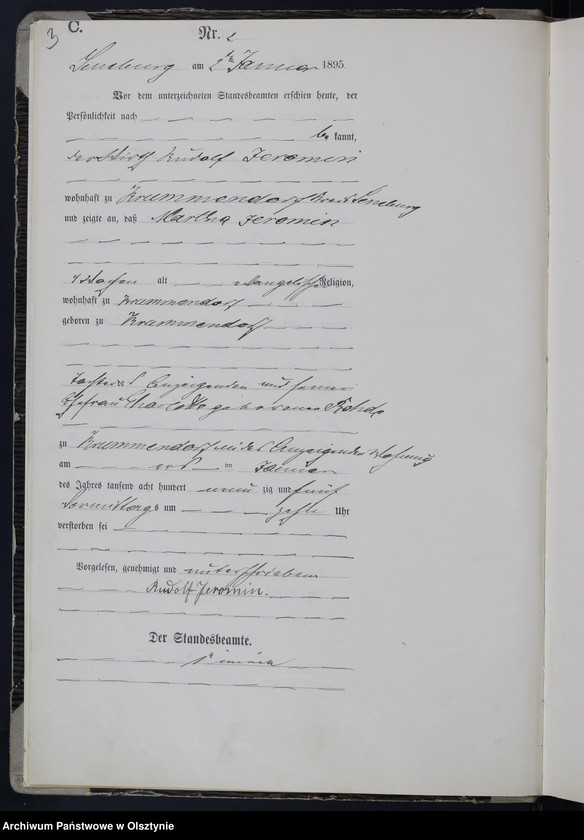 3
C.
Nr. 2
Sensburg am 2ten Januar 1895.
Vor dem unterzeichneten Standesbeamten erschien heute, der
Persönlichkeit nach
be kannt,
der Wirth Rudolf Jeromin
wohnhaft zu Krummendorf Kreis Sensburg
und zeigte an, daß Martha Jeromin
Wochen alt evangelischer Religion,
wohnhaft zu Krummendorf
geboren zu Krummendorf
Tochter des Anzeigenden und seiner
Ehefrau Charlotte geborenen
zu Krummendorf in des Anzeigenden Wohnung
am ersten Januar
des Jahres tausend acht hundert neun zig und fünf
Vormittags um Uhr
verstorben sei
Vorgelesen, genehmigt und unterschrieben
Rudolf Jeromin.
Der Standesbeamte.
Archiwum Państwowe w Olsztynie